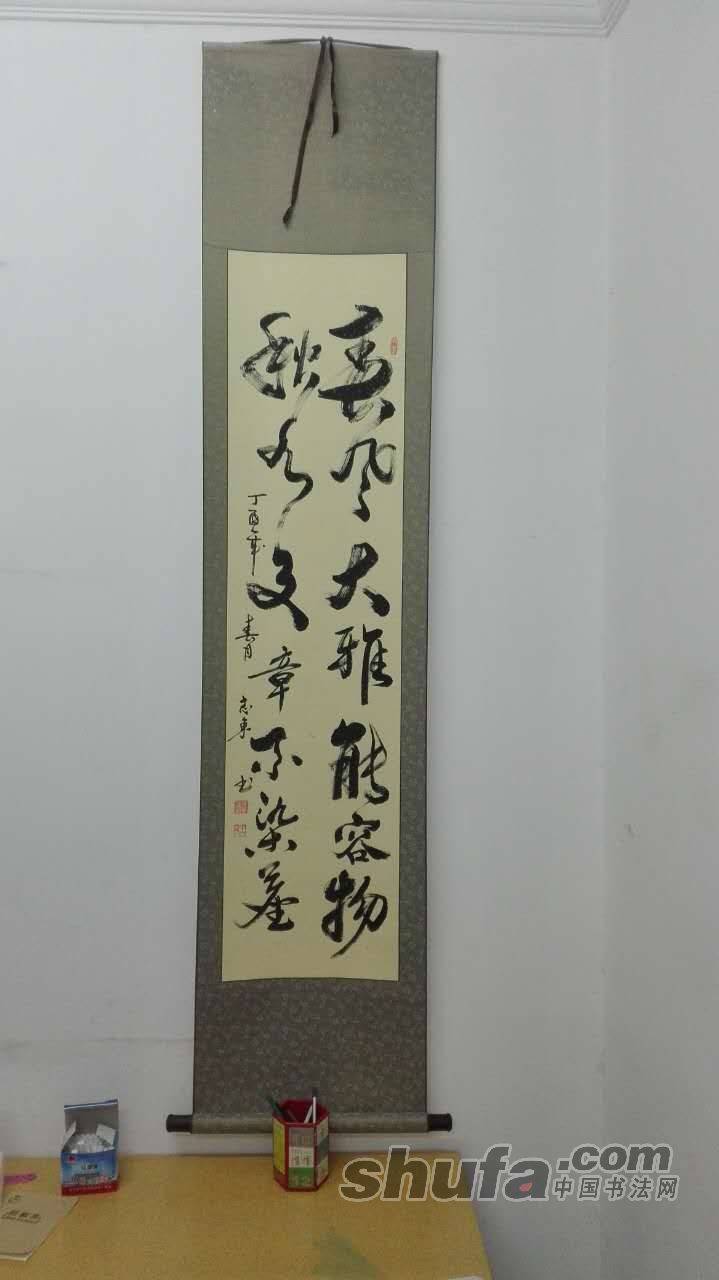 春风大雅能容物
秋水文章不染尘
丁酉年 春月 志东 书
shufa.com
中国书法网